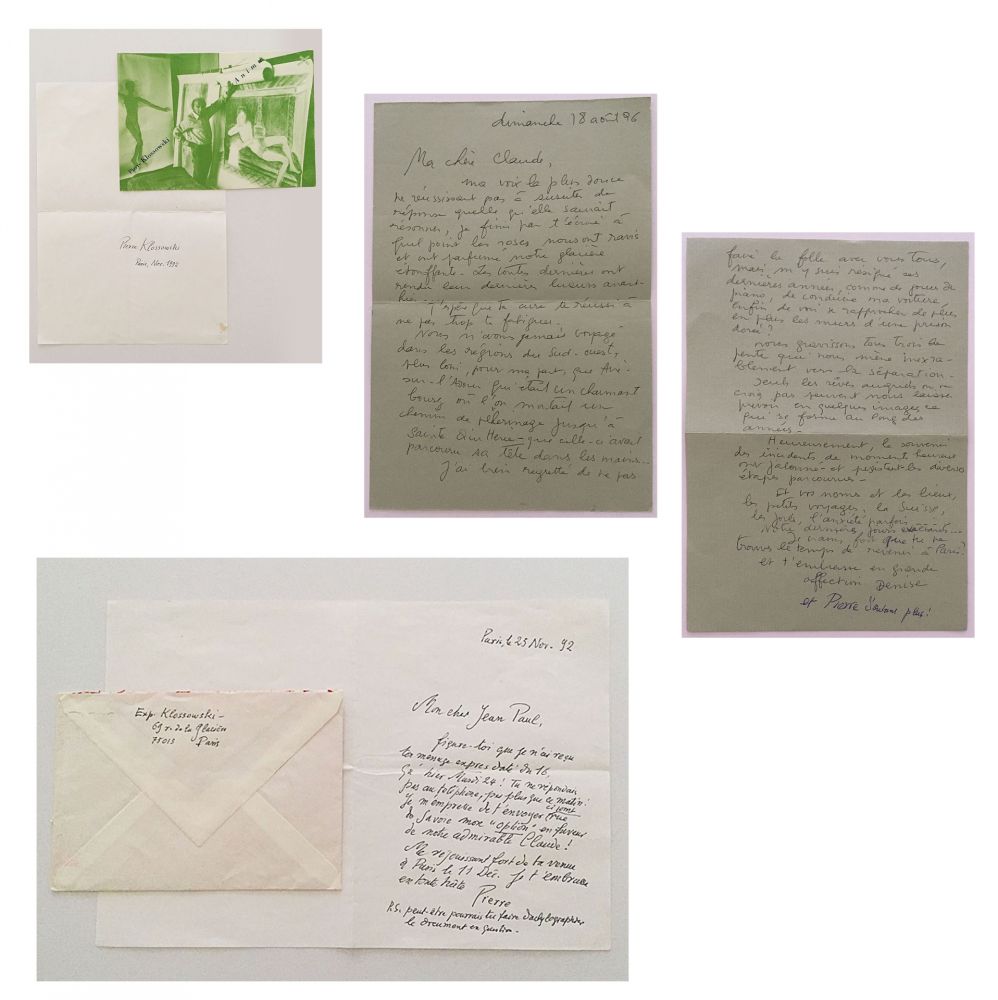 Pierre Klossowski
Anima
Pierre Klossowski
Paris, Nov. 1992
dimanche 18 août 96
Ma chère Claude,
ma voix la plus douce
ne réussissant pas à susciter de
réponse quelle qu'elle saurait
résonner, je finis par t'écrire à
quel point les roses nous ont ravis
et ont parfumé notre glacière
étouffante - Les toutes dernières ont
rendu leur dernière lueurs avant-
hier - j'espère que ta cure te réussit à
ne pas trop te fatiguer.
Nous n'avons jamais voyagé
dans les régions du Sud-ouest,
plus loin, pour ma part, que Aire-
sur-l'Adour qui était un charmant
bourg où l'on montait un
chemin de pèlerinage jusqu'à
Sainte Quitterie - que celle-ci avait
parcouru sa tête dans les mains...
J'ai bien regretté de ne pas
faire la folle avec vous tous,
mais m'y suis résigné ces
dernières années, comme de jouer du
piano, de conduire ma voiture,
enfin de voir se rapprocher de plus
en plus les murs d'une prison
dorée?
nous gravissons tous trois la
pente qui nous mène inexora-
blement vers la séparation -
Seuls les rêves auxquels on ne
croit pas peuvent nous laisser
prévoir en quelques images ce
qui se forme au long des
années -
Heureusement, le souvenir
des incidents de moments heureux
ont jalonné - et persistent - les diverses
étapes parcourues -
Et vos noms et les lieux,
les petits voyages, la Suisse,
les joies, l'anxiété parfois
Votre dernière,
Je crains fort que tu ne
trouves le temps de revenir à Paris?
et t'embrasse en grande
affection Denise
et Pierre d'autant plus!
Paris, le 25 Nov. 92
Mon cher Jean Paul,
figure-toi que je n'ai reçu
ton message expres daté du 16,
qu'hier Mardi 24! Tu ne répondais
pas au téléphone, pas plus que ce matin:
Je m'empresse de t'envoyer ci-joint
en Savoie mon "option" en faveur
de notre admirable Claude!
Me réjouissant fort de ta venue
à Paris le 11 Déc. Je t'embrasse
en toute hâte Pierre
P.S. peut-être pourrais tu faire dactylographier
le document en question -
Exp. Klossowski -
69 r. de la Glacière
75013 Paris